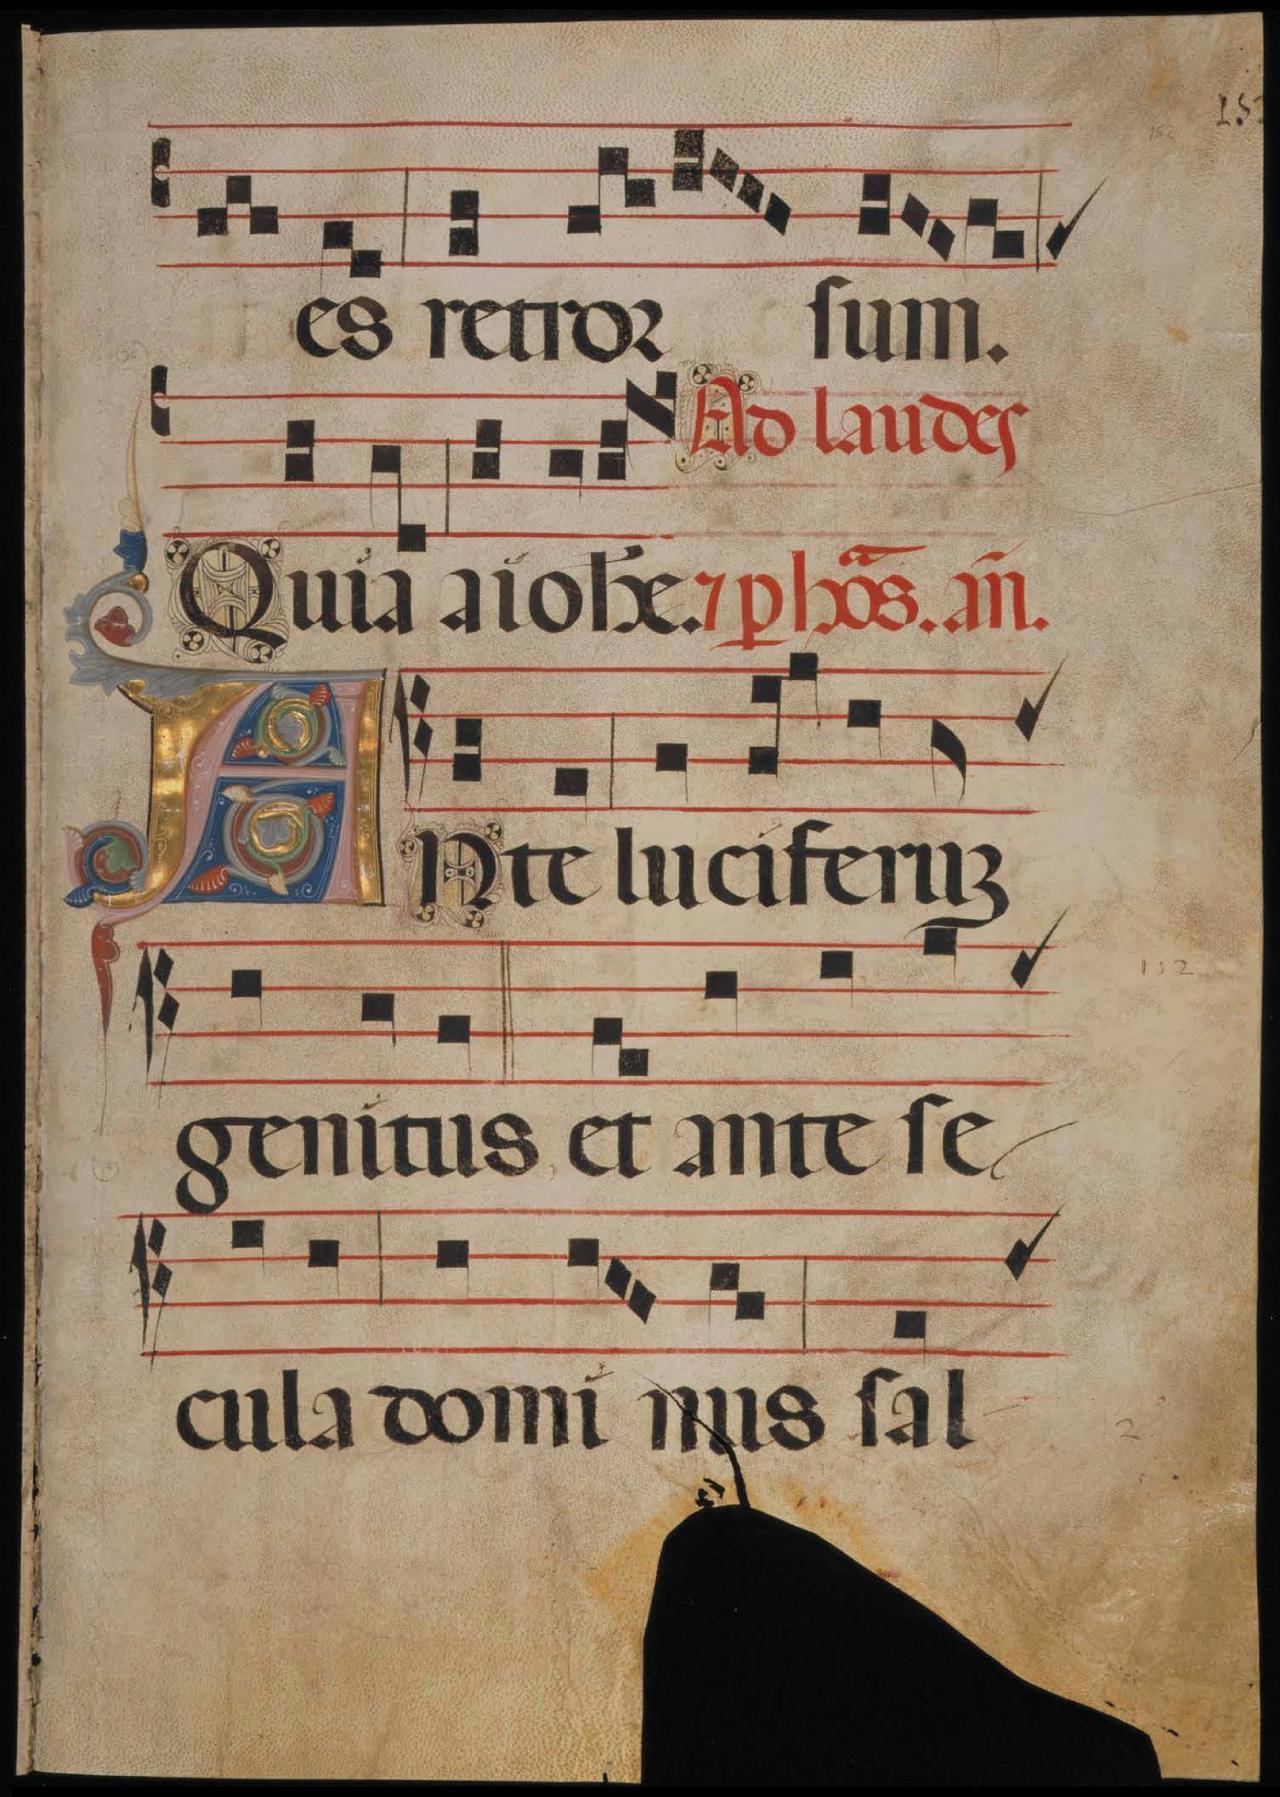 152
152
es retror sum.
Ad laudes
Quia a iohe. ⁊ phōs. an̄.
Ante luciferuꝫ
112
genitus et ante se
cula domi nus sal
2